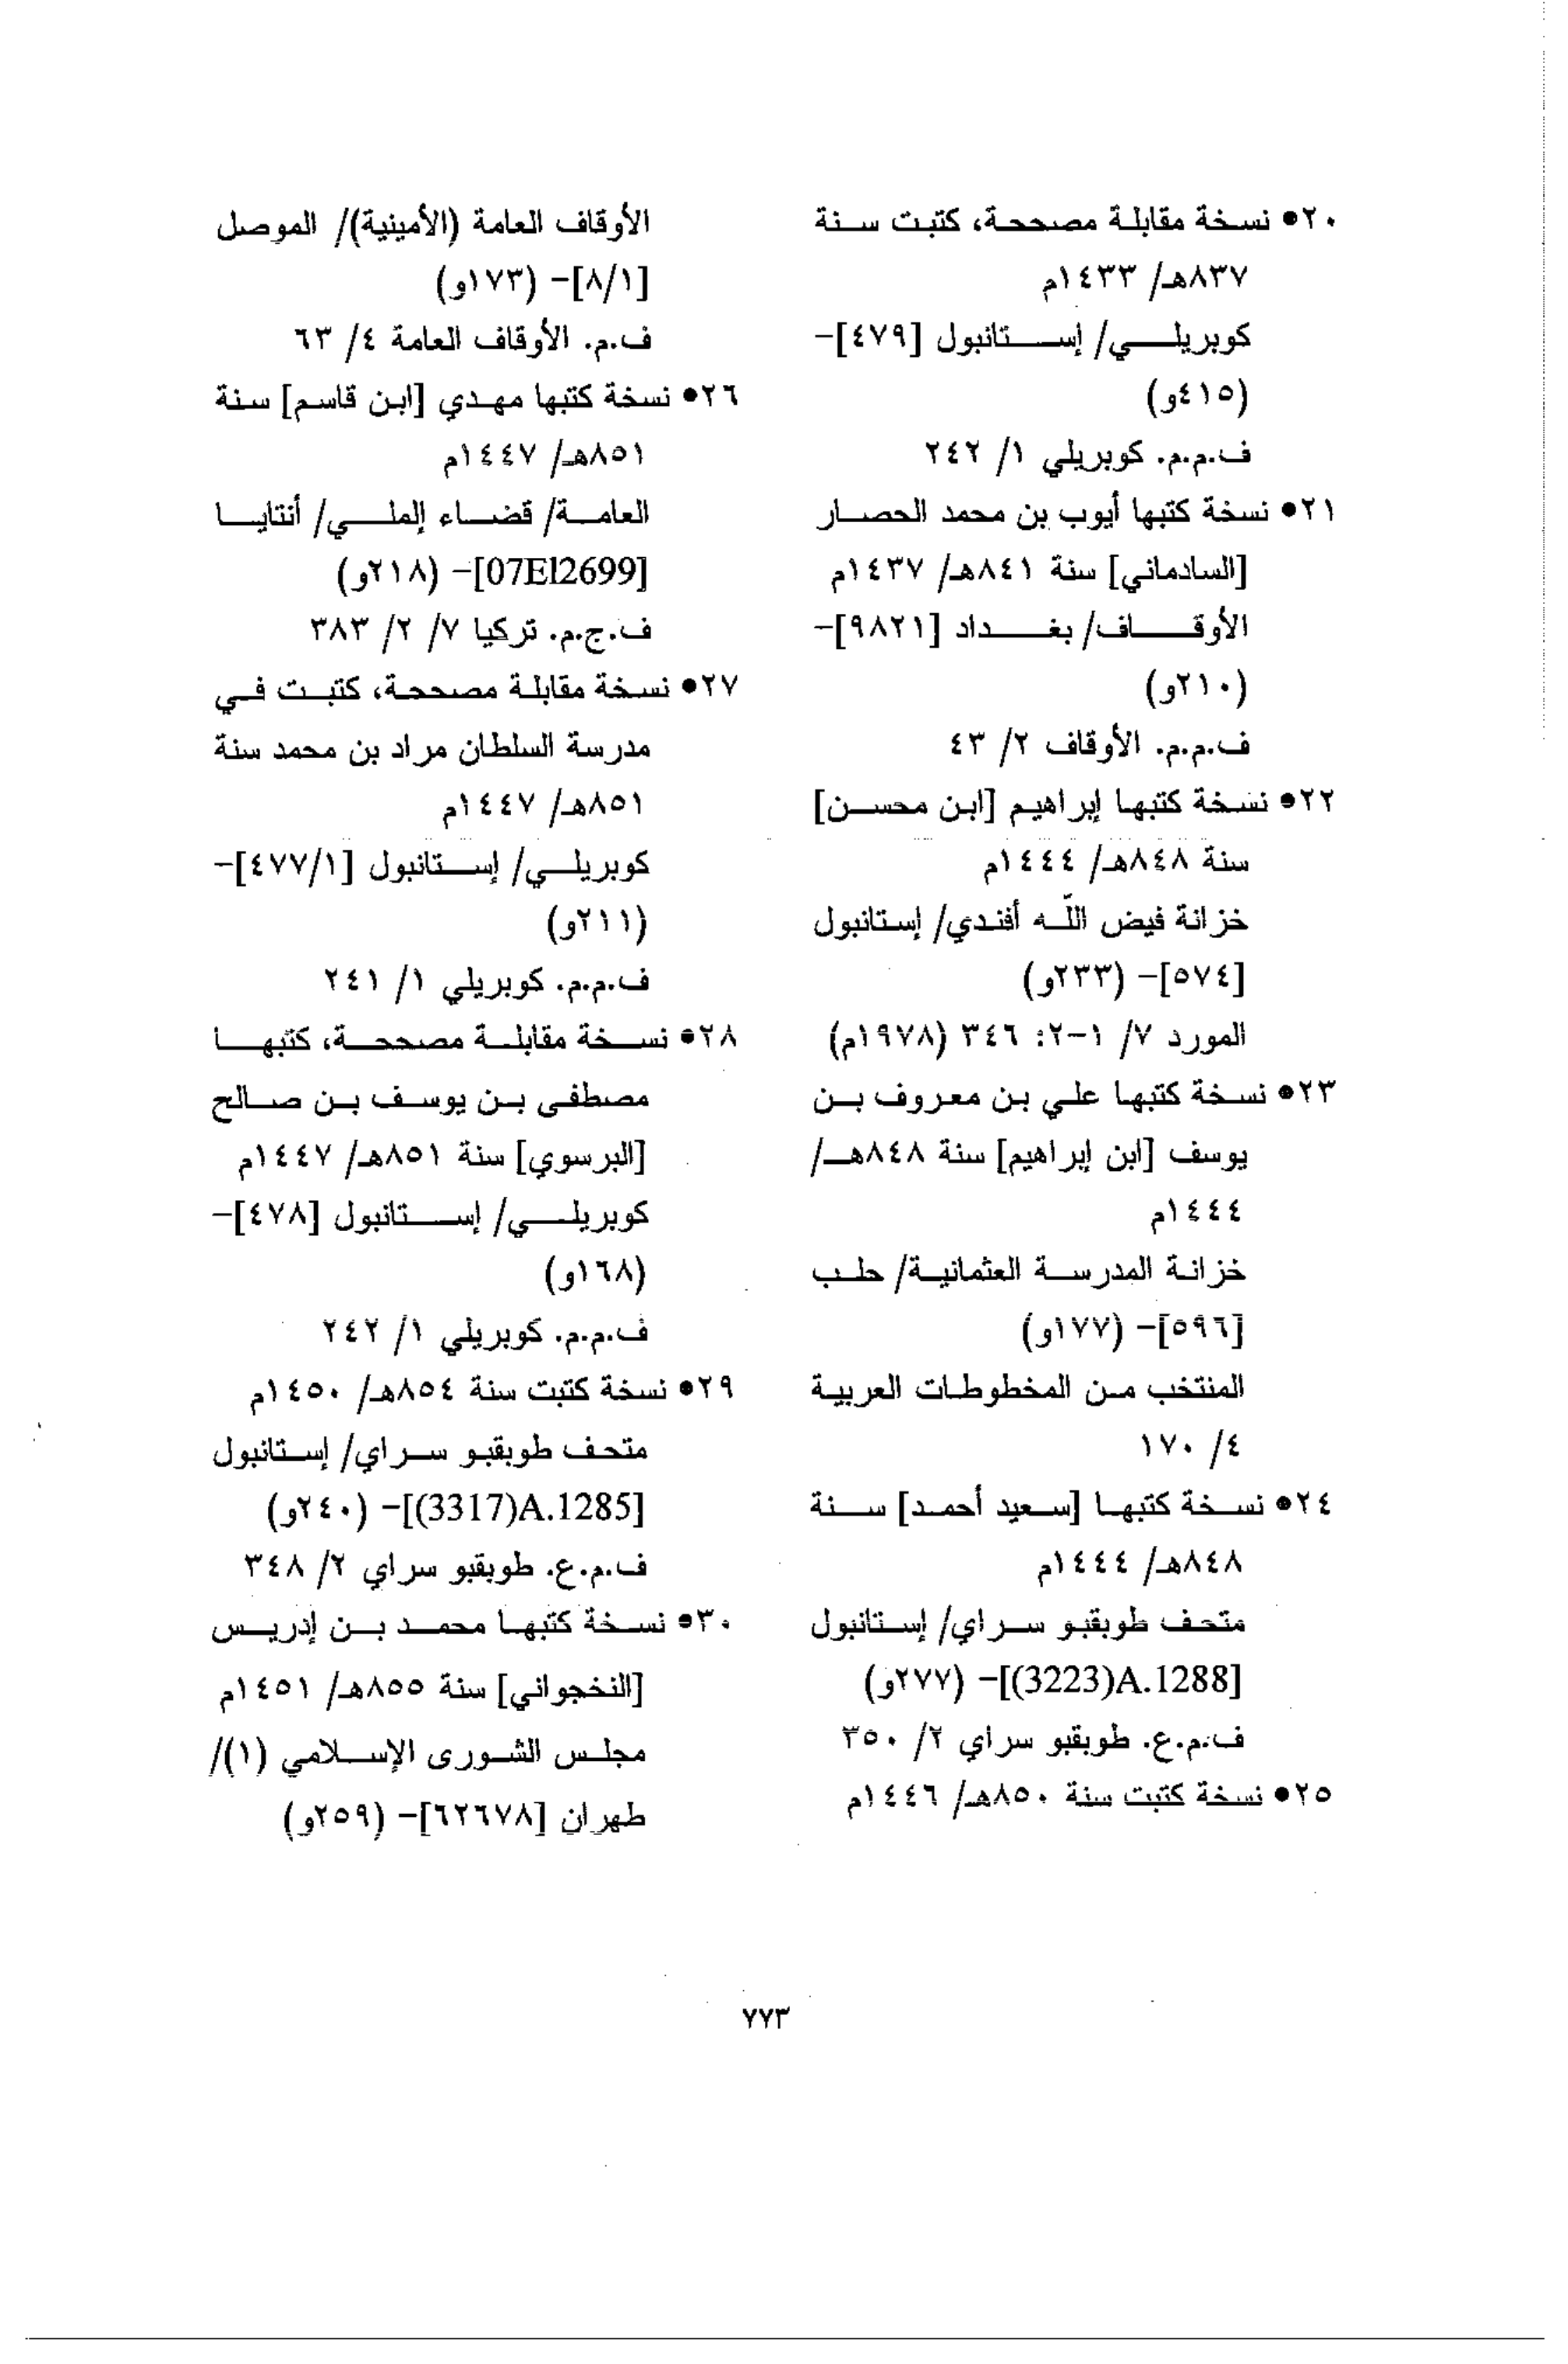 ٢٠● نسخة مقابلة مصححة، كتبت سنة
٨٣٧هـ/ ١٤٣٣م
كوبريلي/ إستانبول [٤٧٩]-
(٤١٥و)
ف.م.م. كوبريلي ١/ ٢٤٢
٢١● نسخة كتبها أيوب بن محمد الحصار
[السادماني] سنة ٨٤١هـ/ ١٤٣٧م
الأوقاف/ بغداد [٩٨٢١]-
(٢١٠و)
ف.م.م. الأوقاف ٢/ ٤٣
٢٢● نسخة كتبها إبراهيم [ابن محسن]
سنة ٨٤٨هـ/ ١٤٤٤م
خزانة فيض اللّه أفندي/ إستانبول
[٥٧٤]- (٢٣٣و)
المورد ٧/ ١-٢: ٣٤٦ (١٩٧٨م)
٢٣● نسخة كتبها علي بن معروف بن
يوسف [ابن إبراهيم] سنة ٨٤٨هـ/
١٤٤٤م
خزانة المدرسة العثمانية/ حلب
[٥٩٦]- (١٧٧و)
المنتخب من المخطوطات العربية
٤/ ١٧٠
٢٤● نسخة كتبها [سعيد أحمد] سنة
٨٤٨هـ/ ١٤٤٤م
متحف طوبقبو سراي/ إستانبول
[3223)A.1288)]- (٢٧٧و)
ف.م.ع. طوبقبو سراي ٢/ ٣٥٠
٢٥● نسخة كتبت سنة ٨٥٠هـ/ ١٤٤٦م
الأوقاف العامة (الأمينية)/ الموصل
[٨/١]- (١٧٣و)
ف.م. الأوقاف العامة ٤/ ٦٣
٢٦● نسخة كتبها مهدي [ابن قاسم] سنة
٨٥١هـ/ ١٤٤٧م
العامة/ قضاء إلملي/ أنتايا
[07El2699]- (٢١٨و)
ف.ج.م. تركيا ٧/ ٢/ ٣٨٣
٢٧● نسخة مقابلة مصححة، كتبت في
مدرسة السلطان مراد بن محمد سنة
٨٥١هـ/ ١٤٤٧م
كوبريلي/ إستانبول [٤٧٧/١]-
(٢١١و)
ف.م.م. كوبريلي ١/ ٢٤١
٢٨● نسخة مقابلة مصححة، كتبها
مصطفى بن يوسف بن صالح
[البرسوي] سنة ٨٥١هـ/ ١٤٤٧م
كوبريلي/ إستانبول [٤٧٨]-
(١٦٨و)
ف.م.م. كوبريلي ١/ ٢٤٢
٢٩● نسخة كتبت سنة ٨٥٤هـ/ ١٤٥٠م
متحف طوبقبو سراي/ إستانبول
[3317)A.1285)]- (٢٤٠و)
ف.م.ع. طوبقبو سراي ٢/ ٣٤٨
٣٠● نسخة كتبها محمد بن إدريس
[النخجواني] سنة ٨٥٥هـ/ ١٤٥١م
مجلس الشورى الإسلامي (١)/
طهران [٦٢٦٧٨]- (٢٥٩و)
٧٧٣